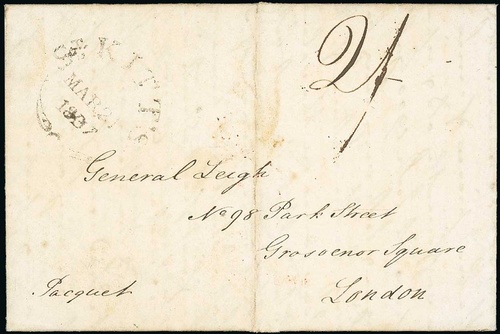 St. KITT'S
MAR 21
1837
2/-
General Leigh
No 98 Park Street
Grosvenor Square
Pacquet London